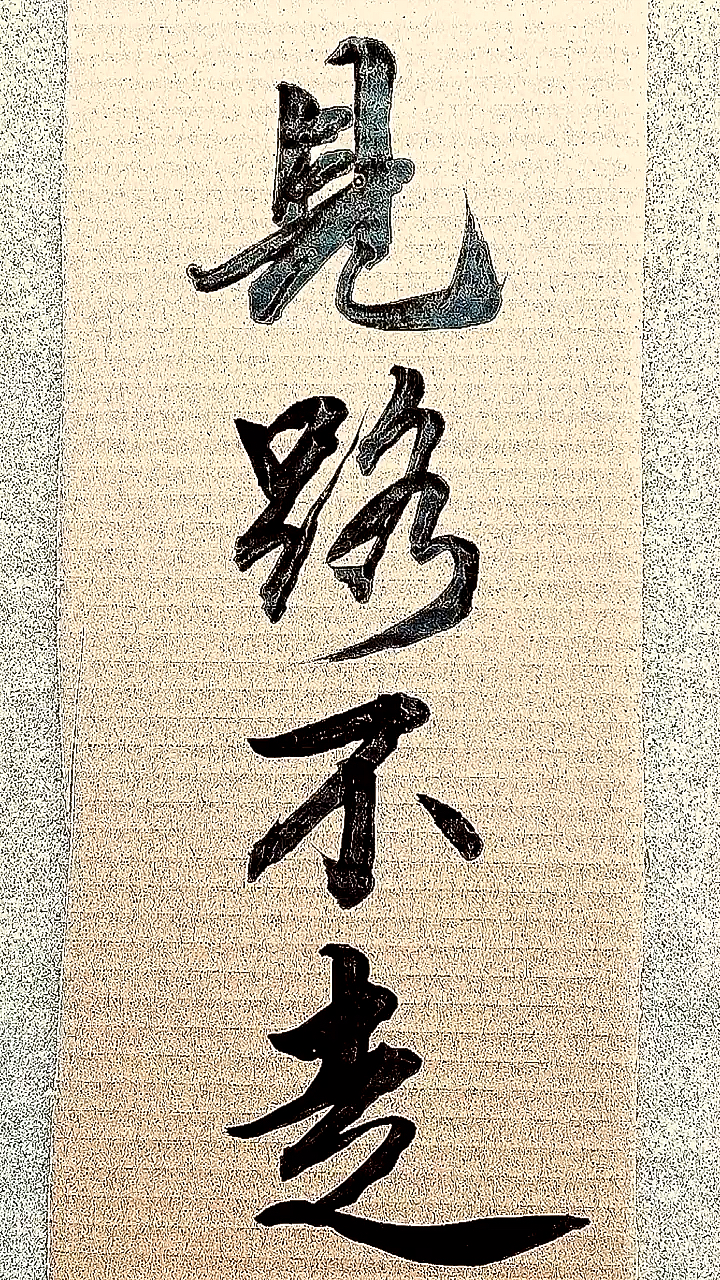 見路不走